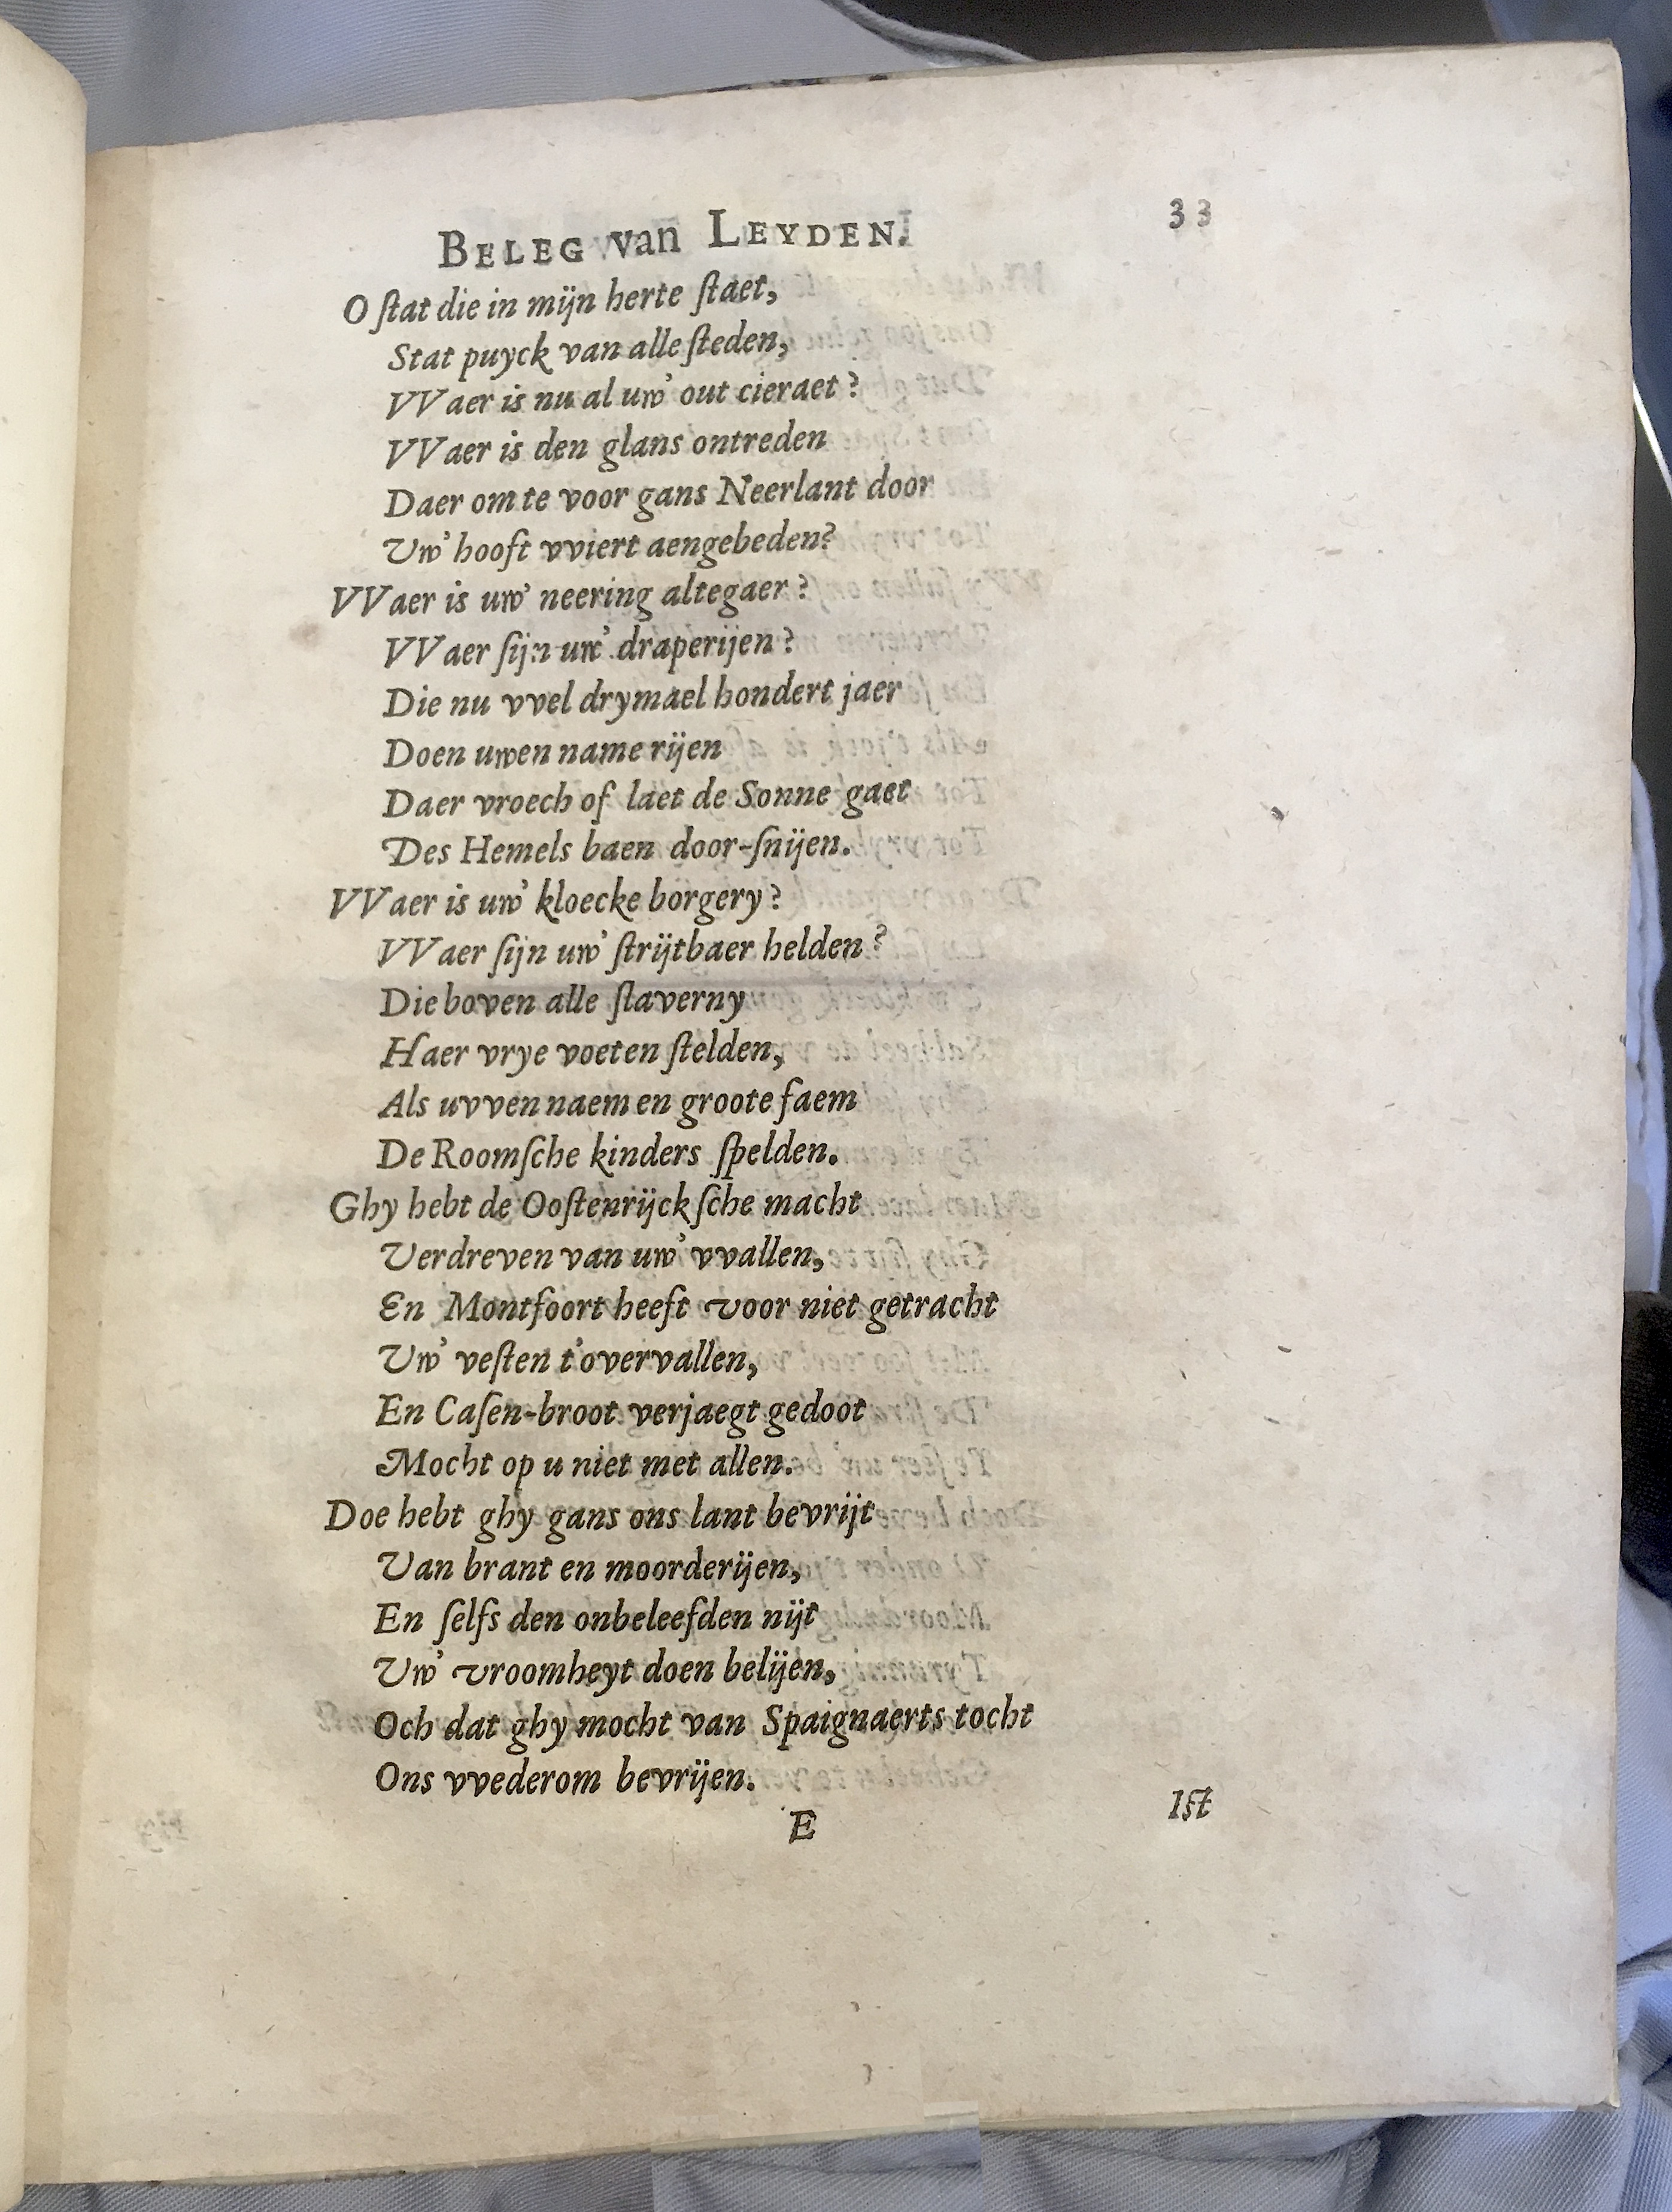 BELEG van LEYDEN. 33
O ſtat die in mijn herte ſtaet,
Stat puyck van alle ſteden,
VVaer is nu al uw' out cieraet?
VVaer is den glans ontreden
Daer om te voor gans Neerlant door
Uw' hooft vviert aengebeden?
VVaer is uw' neering altegaer?
VVaer ſijn uw' draperijen?
Die nu vvel drymael hondert jaer
Doen uwen name rijen
Daer vroech of laet de Sonne gaet
Des Hemels baen door-ſnijen.
VVaer is uw' kloecke borgery?
VVaer ſijn uw' ſtrijtbaer helden?
Die boven alle ſlaverny
Haer vrye voeten ſtelden,
Als uvven naem en groote faem
De Roomſche kinders ſpelden.
Ghy hebt de Ooſtenrijckſche macht
Verdreven van uw' vvallen,
En Montfoort heeft voor niet getracht
Uw' veſten t'overvallen,
En Caſen-broot verjaegt gedoot
Mocht op u niet met allen.
Doe hebt ghy gans ons lant bevrijt
Van brant en moorderijen,
En ſelfs den onbeleefden nijt
Uw' vroomheyt doen belijen,
Och dat ghy mocht van Spaignaerts tocht
Ons vvederom bevrijen.
E Iſt